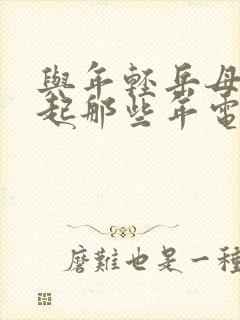 與年輕岳母
起那些年電
磨難也是一種